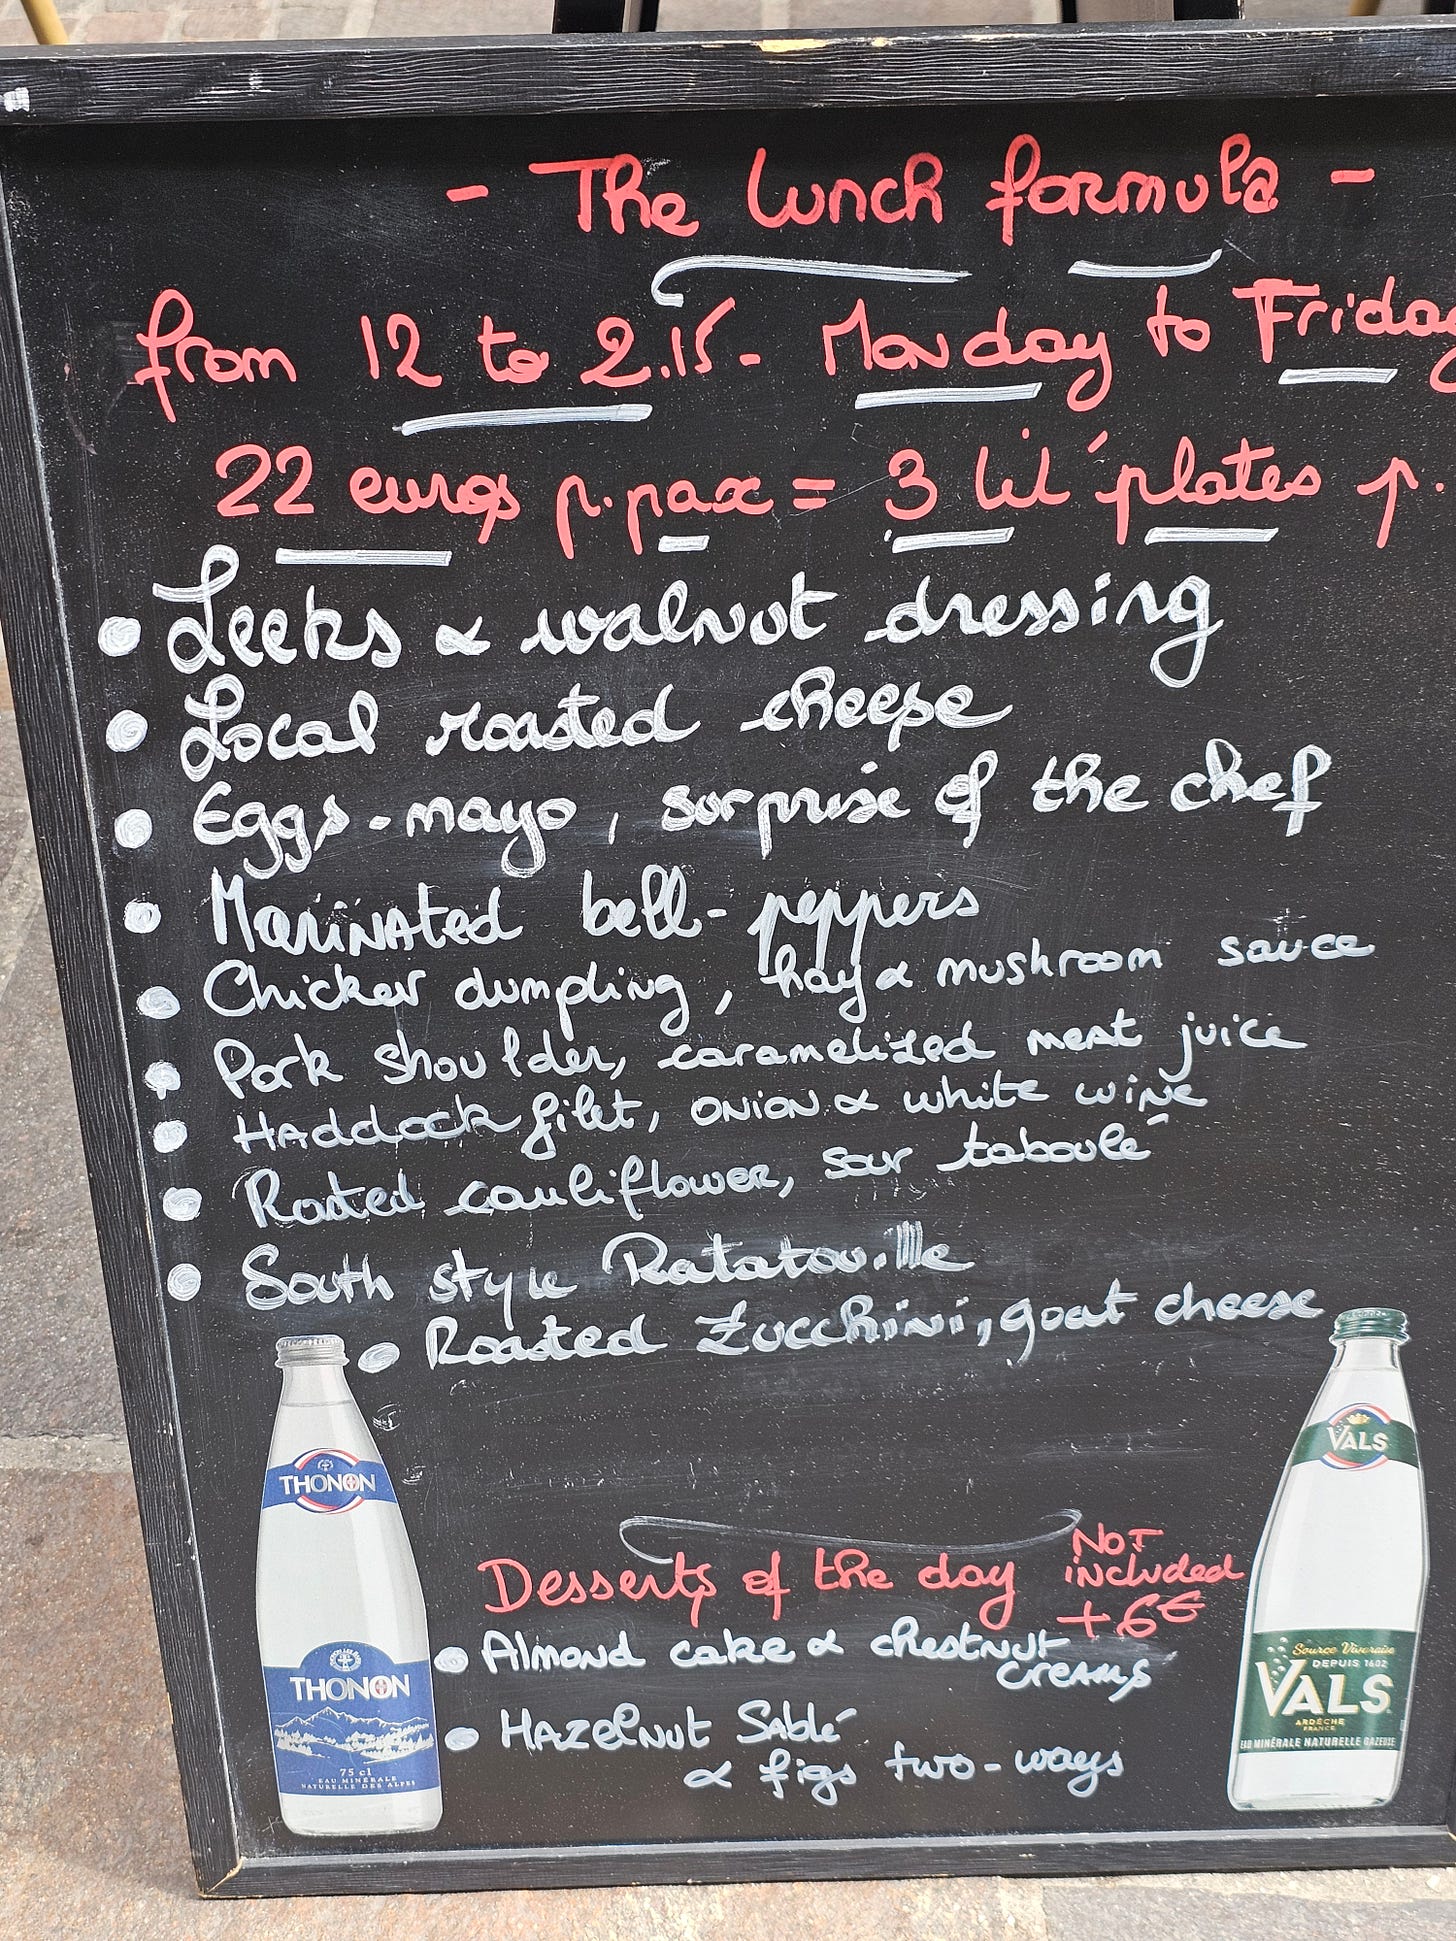 - The lunch formula -
from 12 to 2.15 - Monday to Friday
22 euros p.pax = 3 lil' plates p.
• Leeks & walnut dressing
• Local roasted cheese
• Eggs-mayo, surprise of the chef
• Marinated bell-peppers
• Chicken dumpling, hay & mushroom sauce
• Pork shoulder, caramelized meat juice
• Haddock filet, onion & white wine
• Roasted cauliflower, sour taboulé
• South style Ratatouille
• Roasted Zucchini, goat cheese
Desserts of the day
NOT
included
+6€
• Almond cake & chestnut
creams
• Hazelnut Sablé
& figs two-ways
THONON
THONON
75 cl
EAU MINÉRALE
NATURELLE DES ALPES
VALS
Source Vivaraise
DEPUIS 1602
VALS
ARDÈCHE
FRANCE
EAU MINÉRALE NATURELLE GAZEUSE